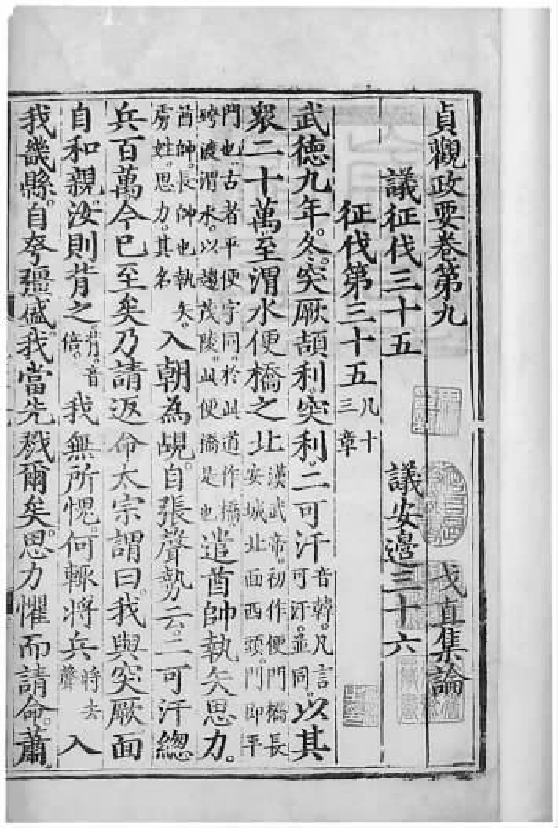 貞觀政要卷第九　戈直集論
議征伐三十五　議安邊三十六
征伐第三十五凡十三章
武德九年。冬。突厥頡利。突利。二可汗音韓。凡言可汗。並同。以其
衆二十萬至渭水便橋之北漢武帝。初作便門橋長安城北面西頭。門即平
門也。古者平便字同。於此道作橋跨渡渭水。以趨茂陵。此便橋是也遣酋帥執矢思力。
酋帥。長帥也執矢。虜姓。思力。其名入朝為覘。自張聲勢云。二可汗總
兵百萬今已至矣乃請返命太宗謂曰。我與突厥面
自和親。汝則背之背。音倍。我無所愧。何輙將兵將。去聲入
我畿縣。自夸彊盛。我當先戮爾矣。思力懼而請命。蕭